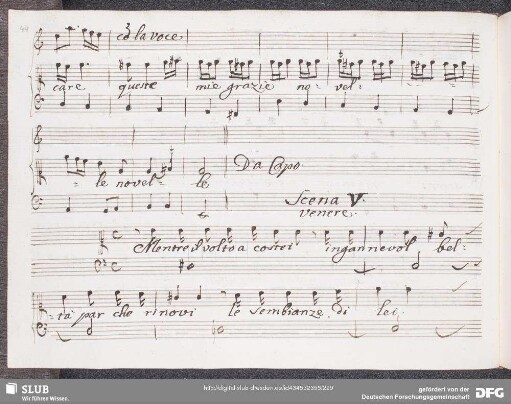 co la voce
care queste mie grazie no - vel -
- le novel - le
Da Capo
Scena V.
Venere.
Mentre il volto a costei ingannevol bel -
- tà par che rinovi le sembianze di lei.
SLUB
Wir führen Wissen.
gefördert von der
Deutschen Forschungsgemeinschaft
DFG